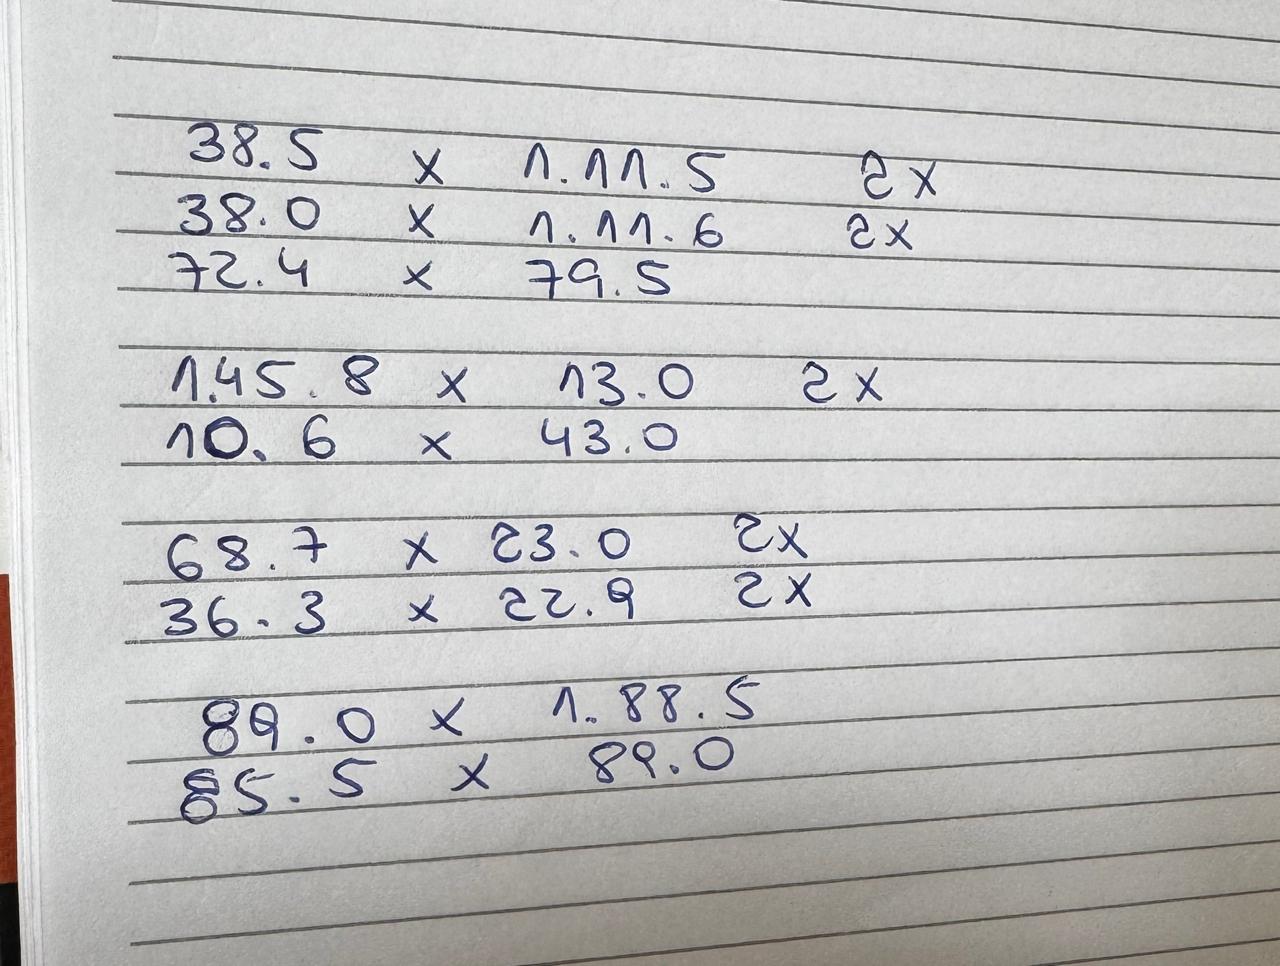 38.5 x 1.11.5 2x
38.0 x 1.11.6 2x
72.4 x 79.5
1.45.8 x 13.0 2x
10.6 x 43.0
68.7 x 23.0 2x
36.3 x 22.9 2x
89.0 x 1.88.5
85.5 x 89.0